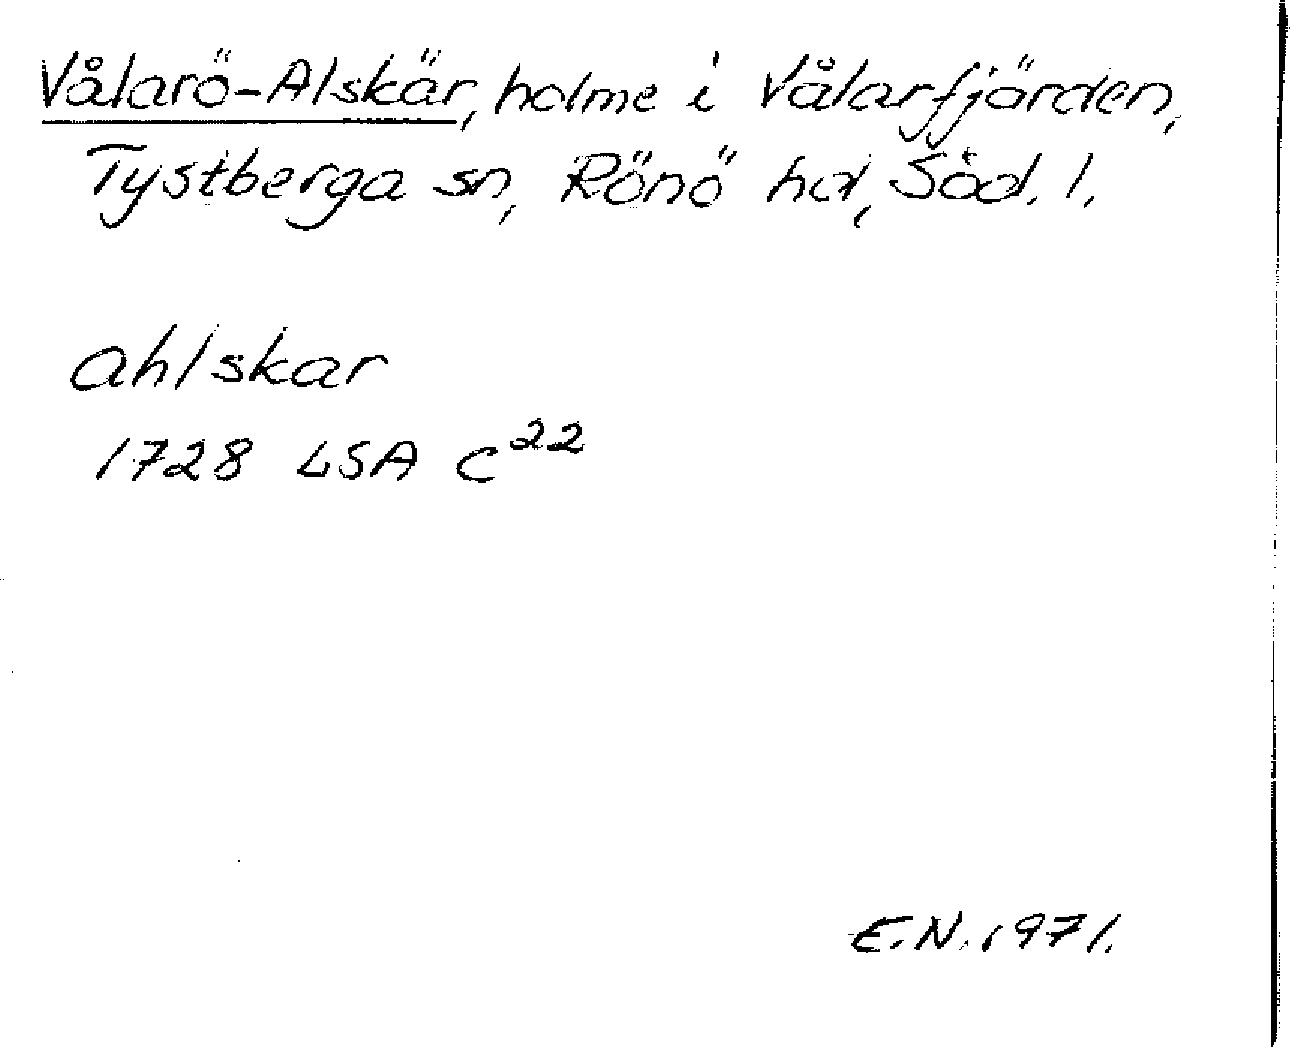 Vålarö-Alskär, holme i Vålarfjärden,
Tystberga sn, Rönö hd, Söd. l.
ahlskar
1728 LSA C²²
E.N. 1971.